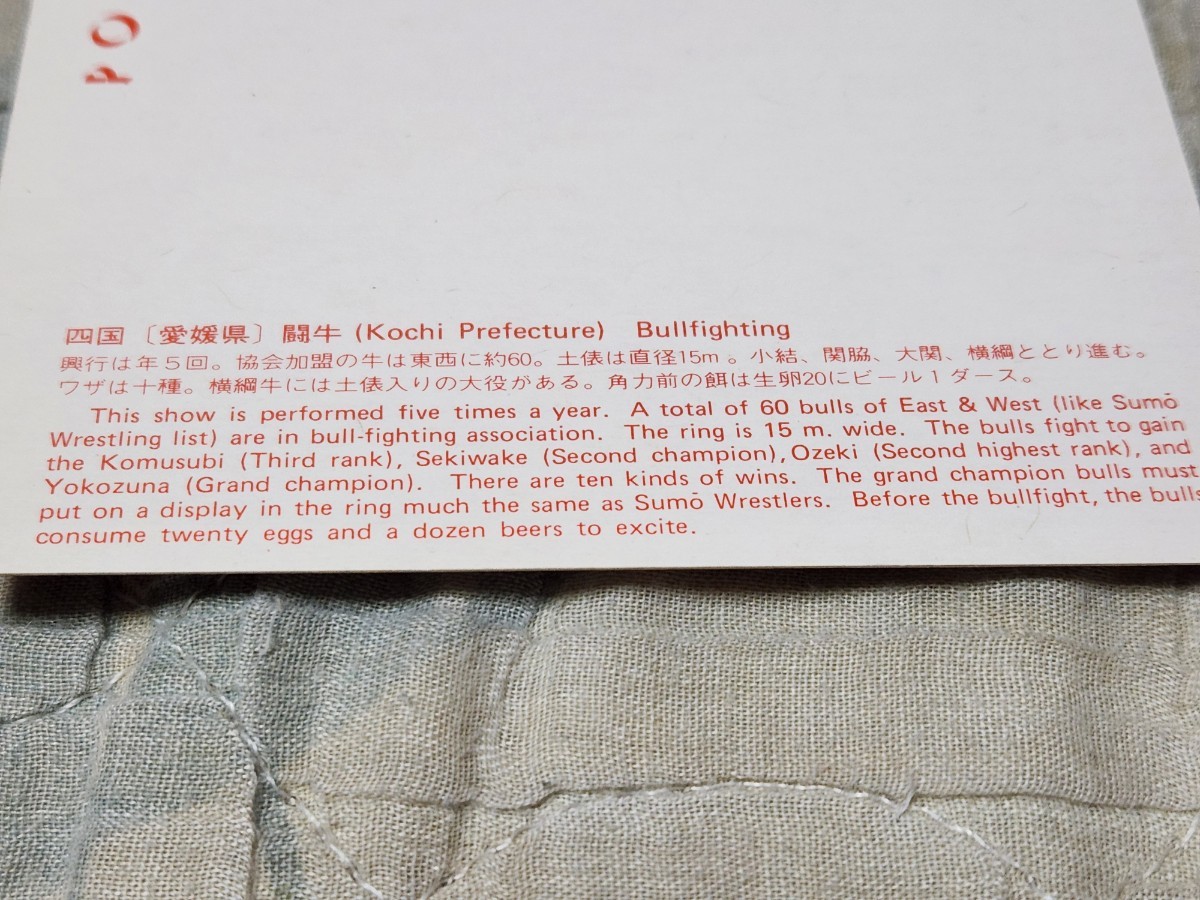 PO
四国〔愛媛県〕闘牛(Kochi Prefecture) Bullfighting
興行は年5回。協会加盟の牛は東西に約60。土俵は直径15m。小結、関脇、大関、横綱ととり進む。
ワザは十種。横綱牛には土俵入りの大役がある。角力前の餌は生卵20にビール1ダース。
This show is performed five times a year. A total of 60 bulls of East & West (like Sumō
Wrestling list) are in bull-fighting association. The ring is 15 m. wide. The bulls fight to gain
the Komusubi (Third rank), Sekiwake (Second champion), Ozeki (Second highest rank), and
Yokozuna (Grand champion). There are ten kinds of wins. The grand champion bulls must
put on a display in the ring much the same as Sumō Wrestlers. Before the bullfight, the bulls
consume twenty eggs and a dozen beers to excite.